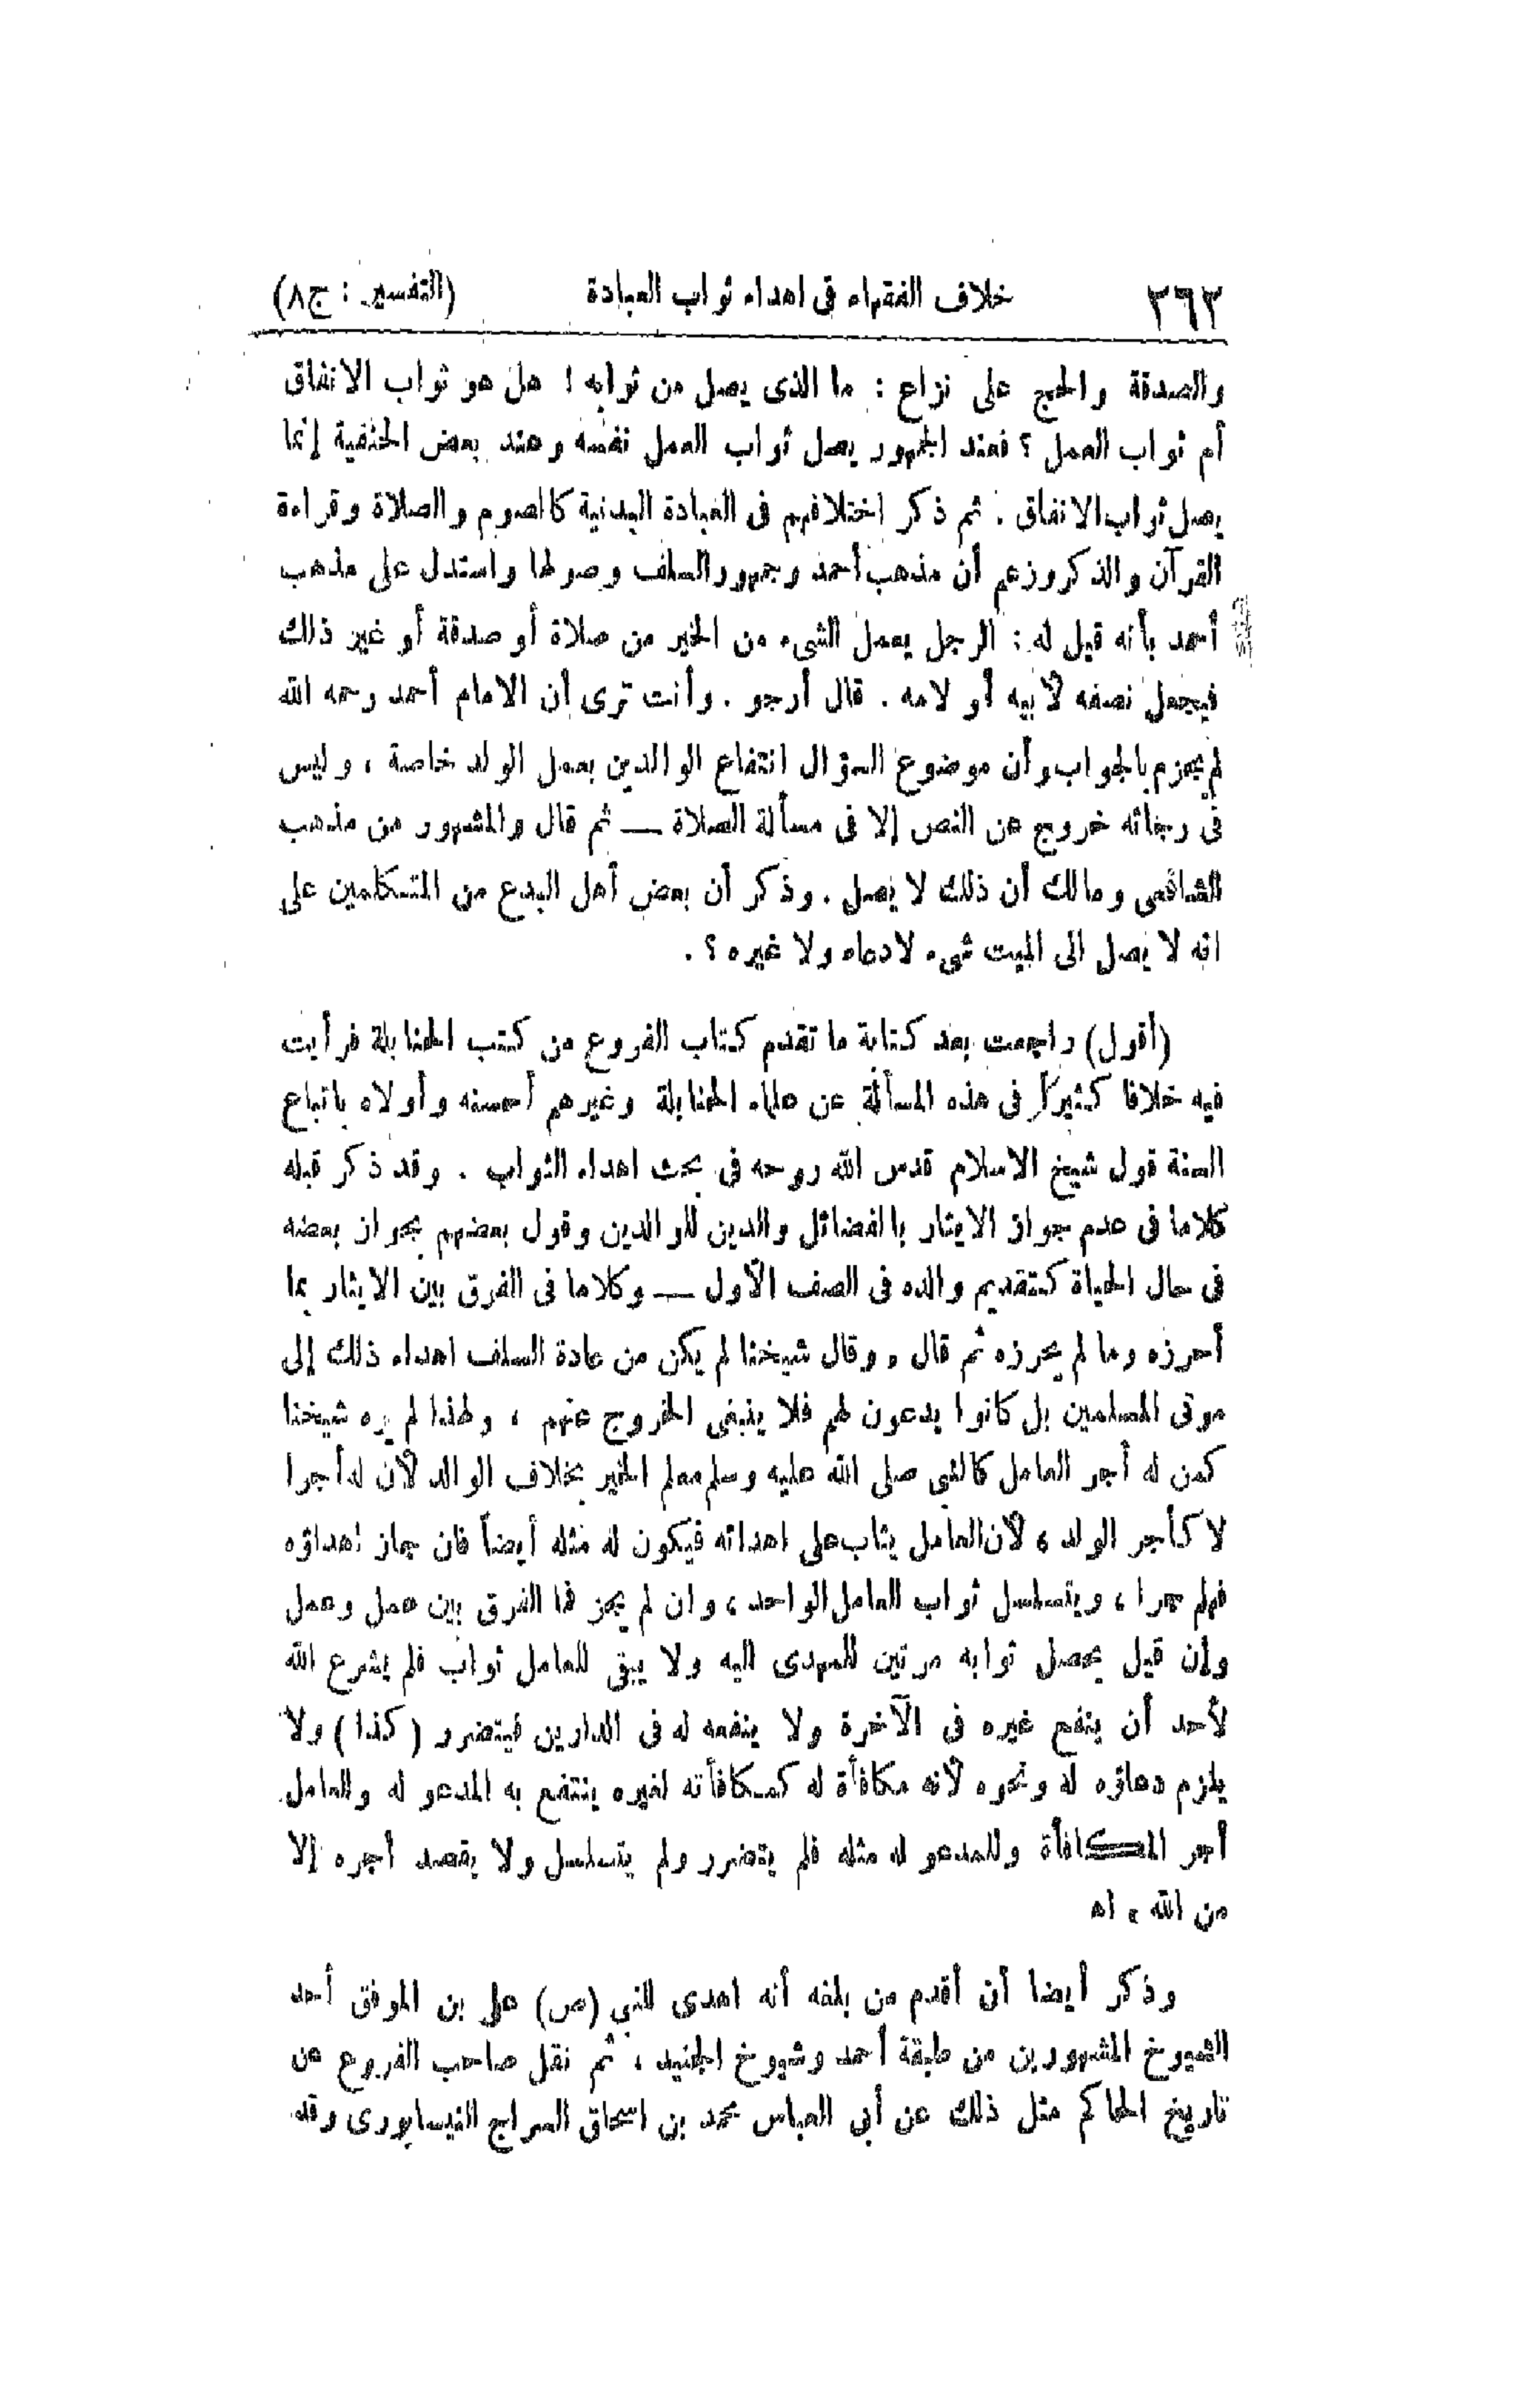 ٢٦٢ خلاف الفقهاء فى اهداء ثواب العبادة (التفسير : ج٨)
والصدقة والحج على نزاع : ما الذى يصل من ثوابه ! هل هو ثواب الانفاق
أم ثواب العمل ؟ فعند الجمهور يصل ثواب العمل نفسه وعند بعض الحنفية إنما
يصل ثواب الانفاق . ثم ذكر اختلافهم فى العبادة البدنية كالصوم والصلاة وقراءة
القرآن والذكر وزعم أن مذهب أحمد وجمهور السلف وصولها واستدل على مذهب
أحمد بأنه قيل له : الرجل يعمل الشىء من الخير من صلاة أو صدقة أو غير ذلك
فيجعل نصفه لأبيه أو لامه . قال أرجو . وأنت ترى أن الامام أحمد رحمه الله
لم يجزم بالجواب وأن موضوع السؤال انتفاع الوالدين بعمل الولد خاصة ، وليس
فى رجائه خروج عن النص إلا فى مسألة الصلاة — ثم قال والمشهور من مذهب
الشافعى ومالك أن ذلك لا يصل . وذكر أن بعض أهل البدع من المتكلمين على
انه لا يصل الى الميت شىء لادعاء ولا غيره ؟ .
(أقول) راجعت بعد كتابة ما تقدم كتاب الفروع من كتب الحنابلة فرأيت
فيه خلافا كثيراً فى هذه المسألة عن علماء الحنابلة وغيرهم أحسنه وأولاه باتباع
السنة قول شيخ الاسلام قدس الله روحه فى بحث اهداء الثواب . وقد ذكر قبله
كلاما فى عدم جواز الايثار بالفضائل والدين للوالدين وقول بعضهم بجواز بعضه
فى حال الحياة كتقديم والده فى الصف الأول — وكلاما فى الفرق بين الايثار بما
أحرزه وما لم يحرزه ثم قال « وقال شيخنا لم يكن من عادة السلف اهداء ذلك إلى
موتى المسلمين بل كانوا يدعون لهم فلا ينبغى الخروج عنهم ، ولهذا لم يره شيخنا
كمن له أجر العامل كالنبى صلى الله عليه وسلم معلم الخير بخلاف الوالد لأن له أجرا
لا كأجر الولد ، لأن العامل يثاب على اهدائه فيكون له مثله أيضاً فان جاز اهداؤه
فهلم جرا ، ويتسلسل ثواب العامل الواحد ، وان لم يجز فما الفرق بين عمل وعمل
وإن قيل يحصل ثوابه مرتين للمهدى اليه ولا يبقى للعامل ثواب فلم يشرع الله
لأحد أن ينفع غيره فى الآخرة ولا ينفعه له فى الدارين فيتضرر ( كذا ) ولا
يلزم دعاؤه له ونحوه لأنه مكافأة له كمكافأته لغيره ينتفع به المدعو له وللعامل
أجر المكافأة وللمدعو له مثله فلم يتضرر ولم يتسلسل ولا يقصد أجره إلا
من الله » اه
وذكر أيضا أن أقدم من بلغه أنه اهدى للنبى (ص) على بن الموفق أحد
الشيوخ المشهورين من طبقة أحمد وشيوخ الجنيد ، ثم نقل صاحب الفروع عن
تاريخ الحاكم مثل ذلك عن أبى العباس محمد بن اسحاق السراج النيسابورى وقد